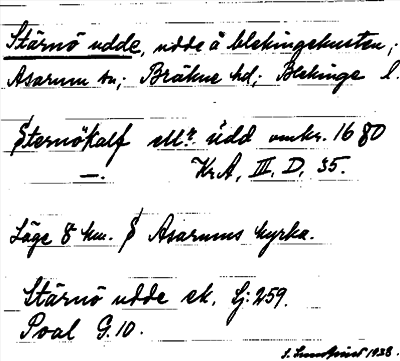 Stärnö udde, udde å blekingekusten;
Asarum sn; Bräkne hd; Blekinge l.
Sternökalf ellr. udd omkr. 1680
—. Kr.A, III, D, 35.
Läge 8 km. S Asarums kyrka.
Stärnö udde ek. Gj: 259.
Poal G. 10.
S. Lundqvist 1928.